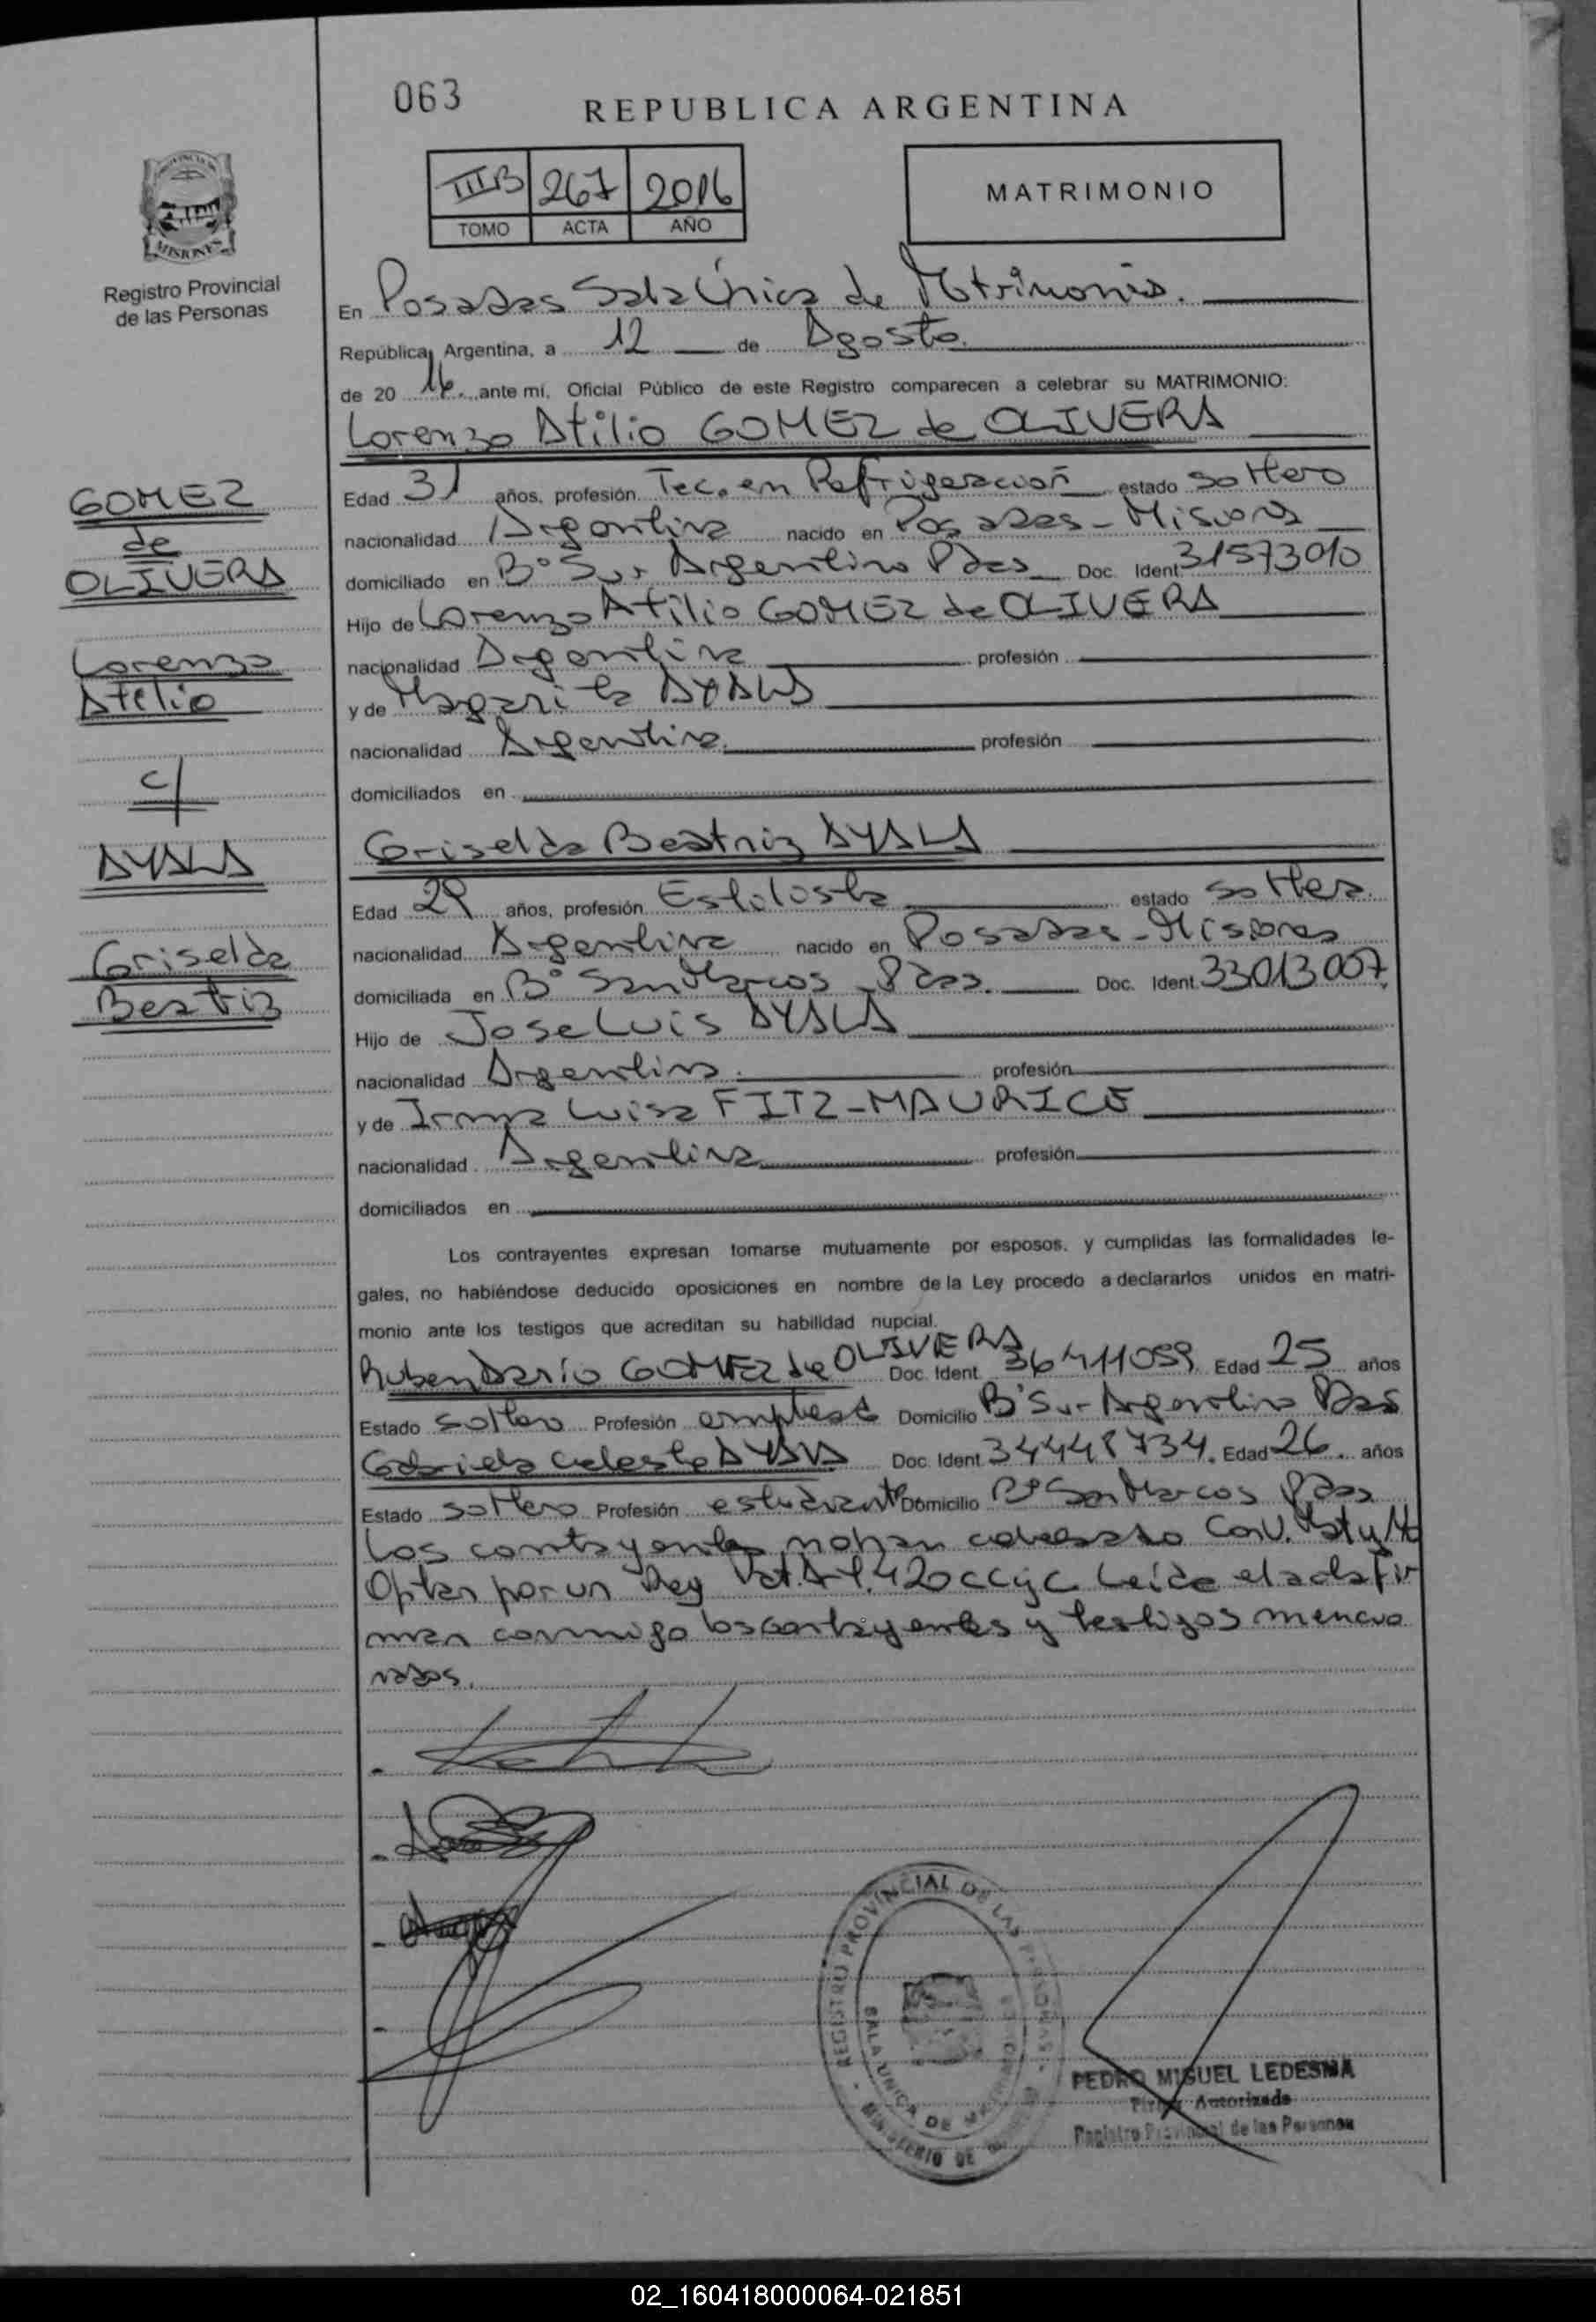 063
REPUBLICA ARGENTINA
IIIB 267 2016
TOMO ACTA AÑO
MATRIMONIO
PROVINCIA DE
MISIONES
Registro Provincial
de las Personas
En Posadas Sala Única de Matrimonio.
República Argentina, a 12 de Agosto.
de 20 16. ante mí, Oficial Público de este Registro comparecen a celebrar su MATRIMONIO:
Lorenzo Atilio GOMEZ de OLIVERA
GOMEZ
de
OLIVERA
Lorenzo
Atilio
c/
AYALA
Griselda
Beatriz
Edad 31 años, profesión Tec. en Refrigeración estado soltero
nacionalidad Argentina nacido en Posadas - Misiones
domiciliado en B° Sur Argentino Pdas Doc. Ident. 31573010
Hijo de Lorenzo Atilio GOMEZ de OLIVERA
nacionalidad Argentina profesión
y de Margarita AYALA
nacionalidad Argentina. profesión
domiciliados en
Griselda Beatriz AYALA
Edad 29 años, profesión Estilista estado soltera.
nacionalidad Argentina nacido en Posadas - Misiones
domiciliada en B° San Marcos Pdas. Doc. Ident. 33013007
Hijo de Jose Luis AYALA
nacionalidad Argentina. profesión
y de Irma Luisa FITZ-MAURICE
nacionalidad Argentina profesión
domiciliados en
Los contrayentes expresan tomarse mutuamente por esposos, y cumplidas las formalidades le-
gales, no habiéndose deducido oposiciones en nombre de la Ley procedo a declararlos unidos en matri-
monio ante los testigos que acreditan su habilidad nupcial.
Ruben Darío GOMEZ de OLIVERA Doc. Ident. 36411059 Edad 25 años
Estado soltero Profesión empleado Domicilio B° Sur Argentino Pdas
Gabriela Celeste AYALA Doc. Ident. 34448734. Edad 26 años
Estado soltero Profesión estudiante Domicilio B° San Marcos Pdas
Los contrayentes no han celebrado Conv. Mat y No
Optan por un Reg Pat. Art. 420 CCyC Leída el acta fir
man conmigo los contrayentes y testigos mencio
nados.
REGISTRO PROVINCIAL DE LAS PERSONAS
SALA UNICA DE
MINISTERIO DE
PEDRO MIGUEL LEDESMA
Firma Autorizada
Registro Provincial de las Personas
02_160418000064-021851